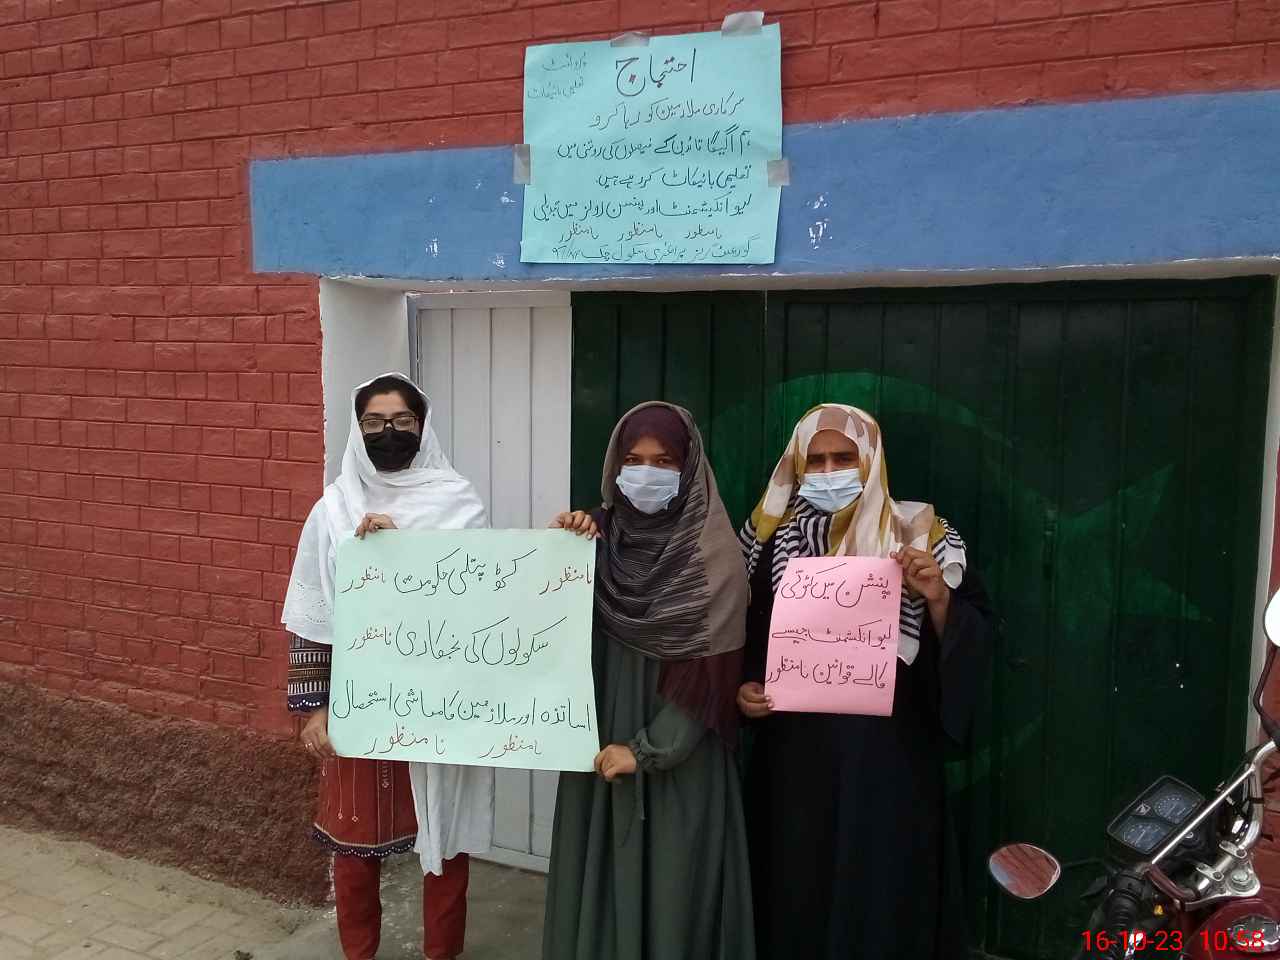 احتجاج
تعلیمی بائیکاٹ
سرکاری ملازمین کو رہا کرو
ہم اگیگا قائدین کے فیصلوں کی روشنی میں
تعلیمی بائیکاٹ کر رہے ہیں
لیو انکیشمنٹ اور پنشن رولز میں تبدیلی
نامنظور نامنظور نامنظور
گورنمنٹ گرلز پرائمری سکول چک
نامنظور کٹھ پتلی حکومت نامنظور
سکولوں کی نجکاری نامنظور
اساتذہ اور ملازمین کا معاشی استحصال
نامنظور نامنظور
پنشن میں کٹوتی
لیو انکیشمنٹ جیسے
کالے قوانین نامنظور
16-10-23 10:58